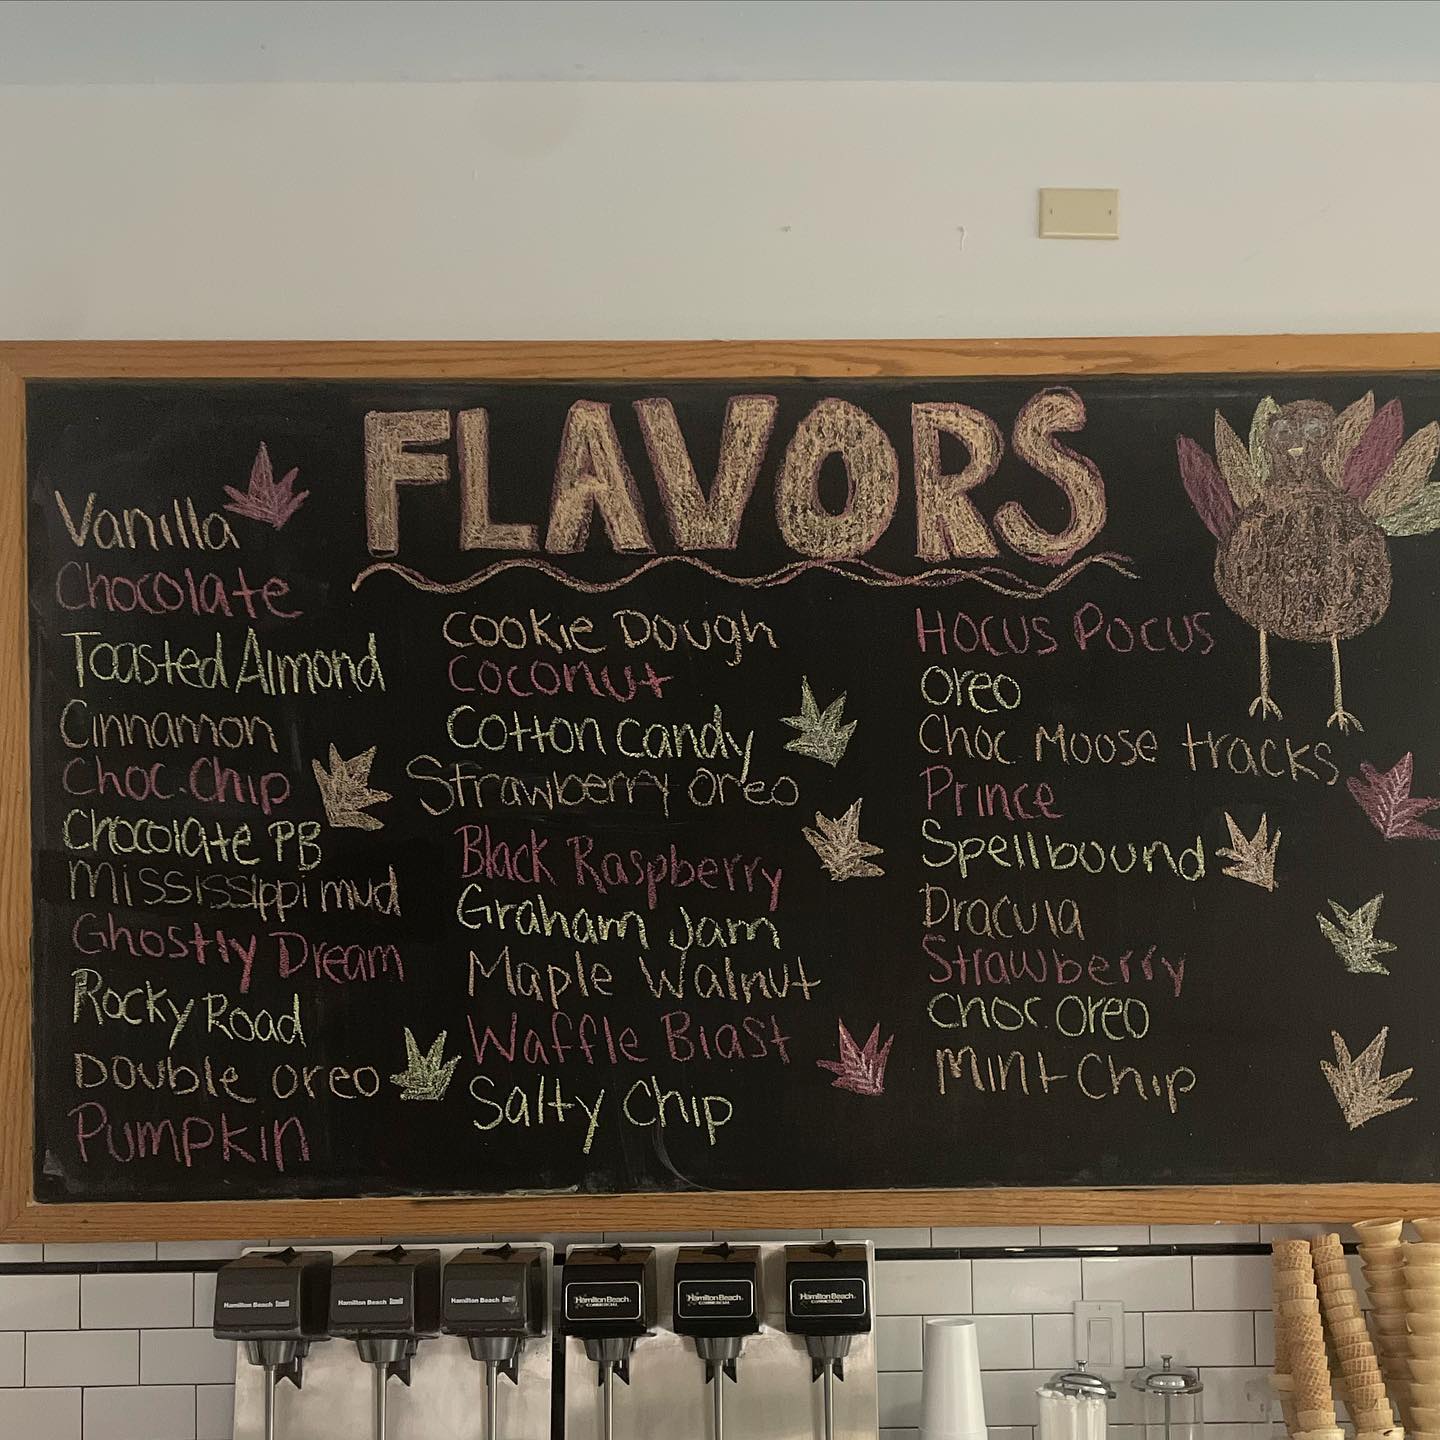 FLAVORS
Vanilla
Chocolate
Toasted Almond
Cinnamon
Choc. Chip
Chocolate PB
Mississippi mud
Ghostly Dream
Rocky Road
Double oreo
Pumpkin
Cookie Dough
Coconut
Cotton Candy
Strawberry oreo
Black Raspberry
Graham Jam
Maple Walnut
Waffle Blast
Salty Chip
Hocus Pocus
Oreo
Choc Moose tracks
Prince
Spellbound
Dracula
Strawberry
Choc. Oreo
Mint Chip
Hamilton Beach
Hamilton Beach
Hamilton Beach
Hamilton Beach
COMMERCIAL
Hamilton Beach
COMMERCIAL
Hamilton Beach
COMMERCIAL